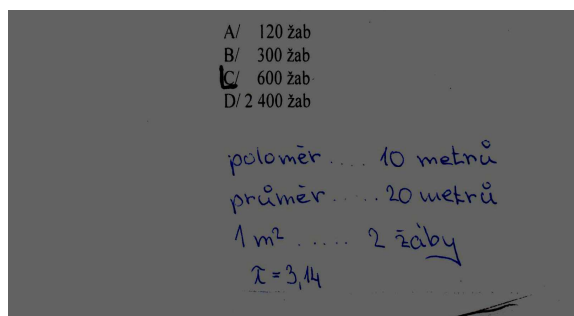 A/ 120 žab
B/ 300 žab
C/ 600 žab
D/ 2 400 žab
poloměr .... 10 metrů
průměr ..... 20 metrů
1 m² ..... 2 žáby
π = 3,14